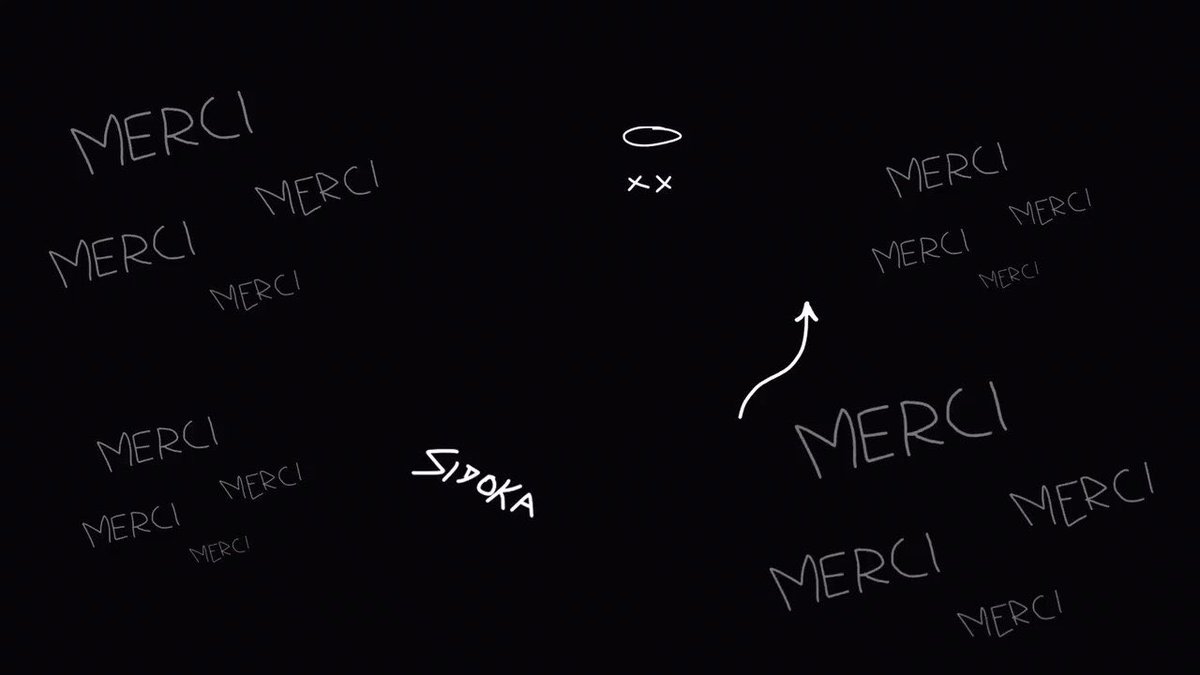 MERCI
MERCI
MERCI
MERCI
MERCI
MERCI
MERCI
MERCI
MERCI
MERCI
MERCI
MERCI
SIDOKA
MERCI
MERCI
MERCI
MERCI